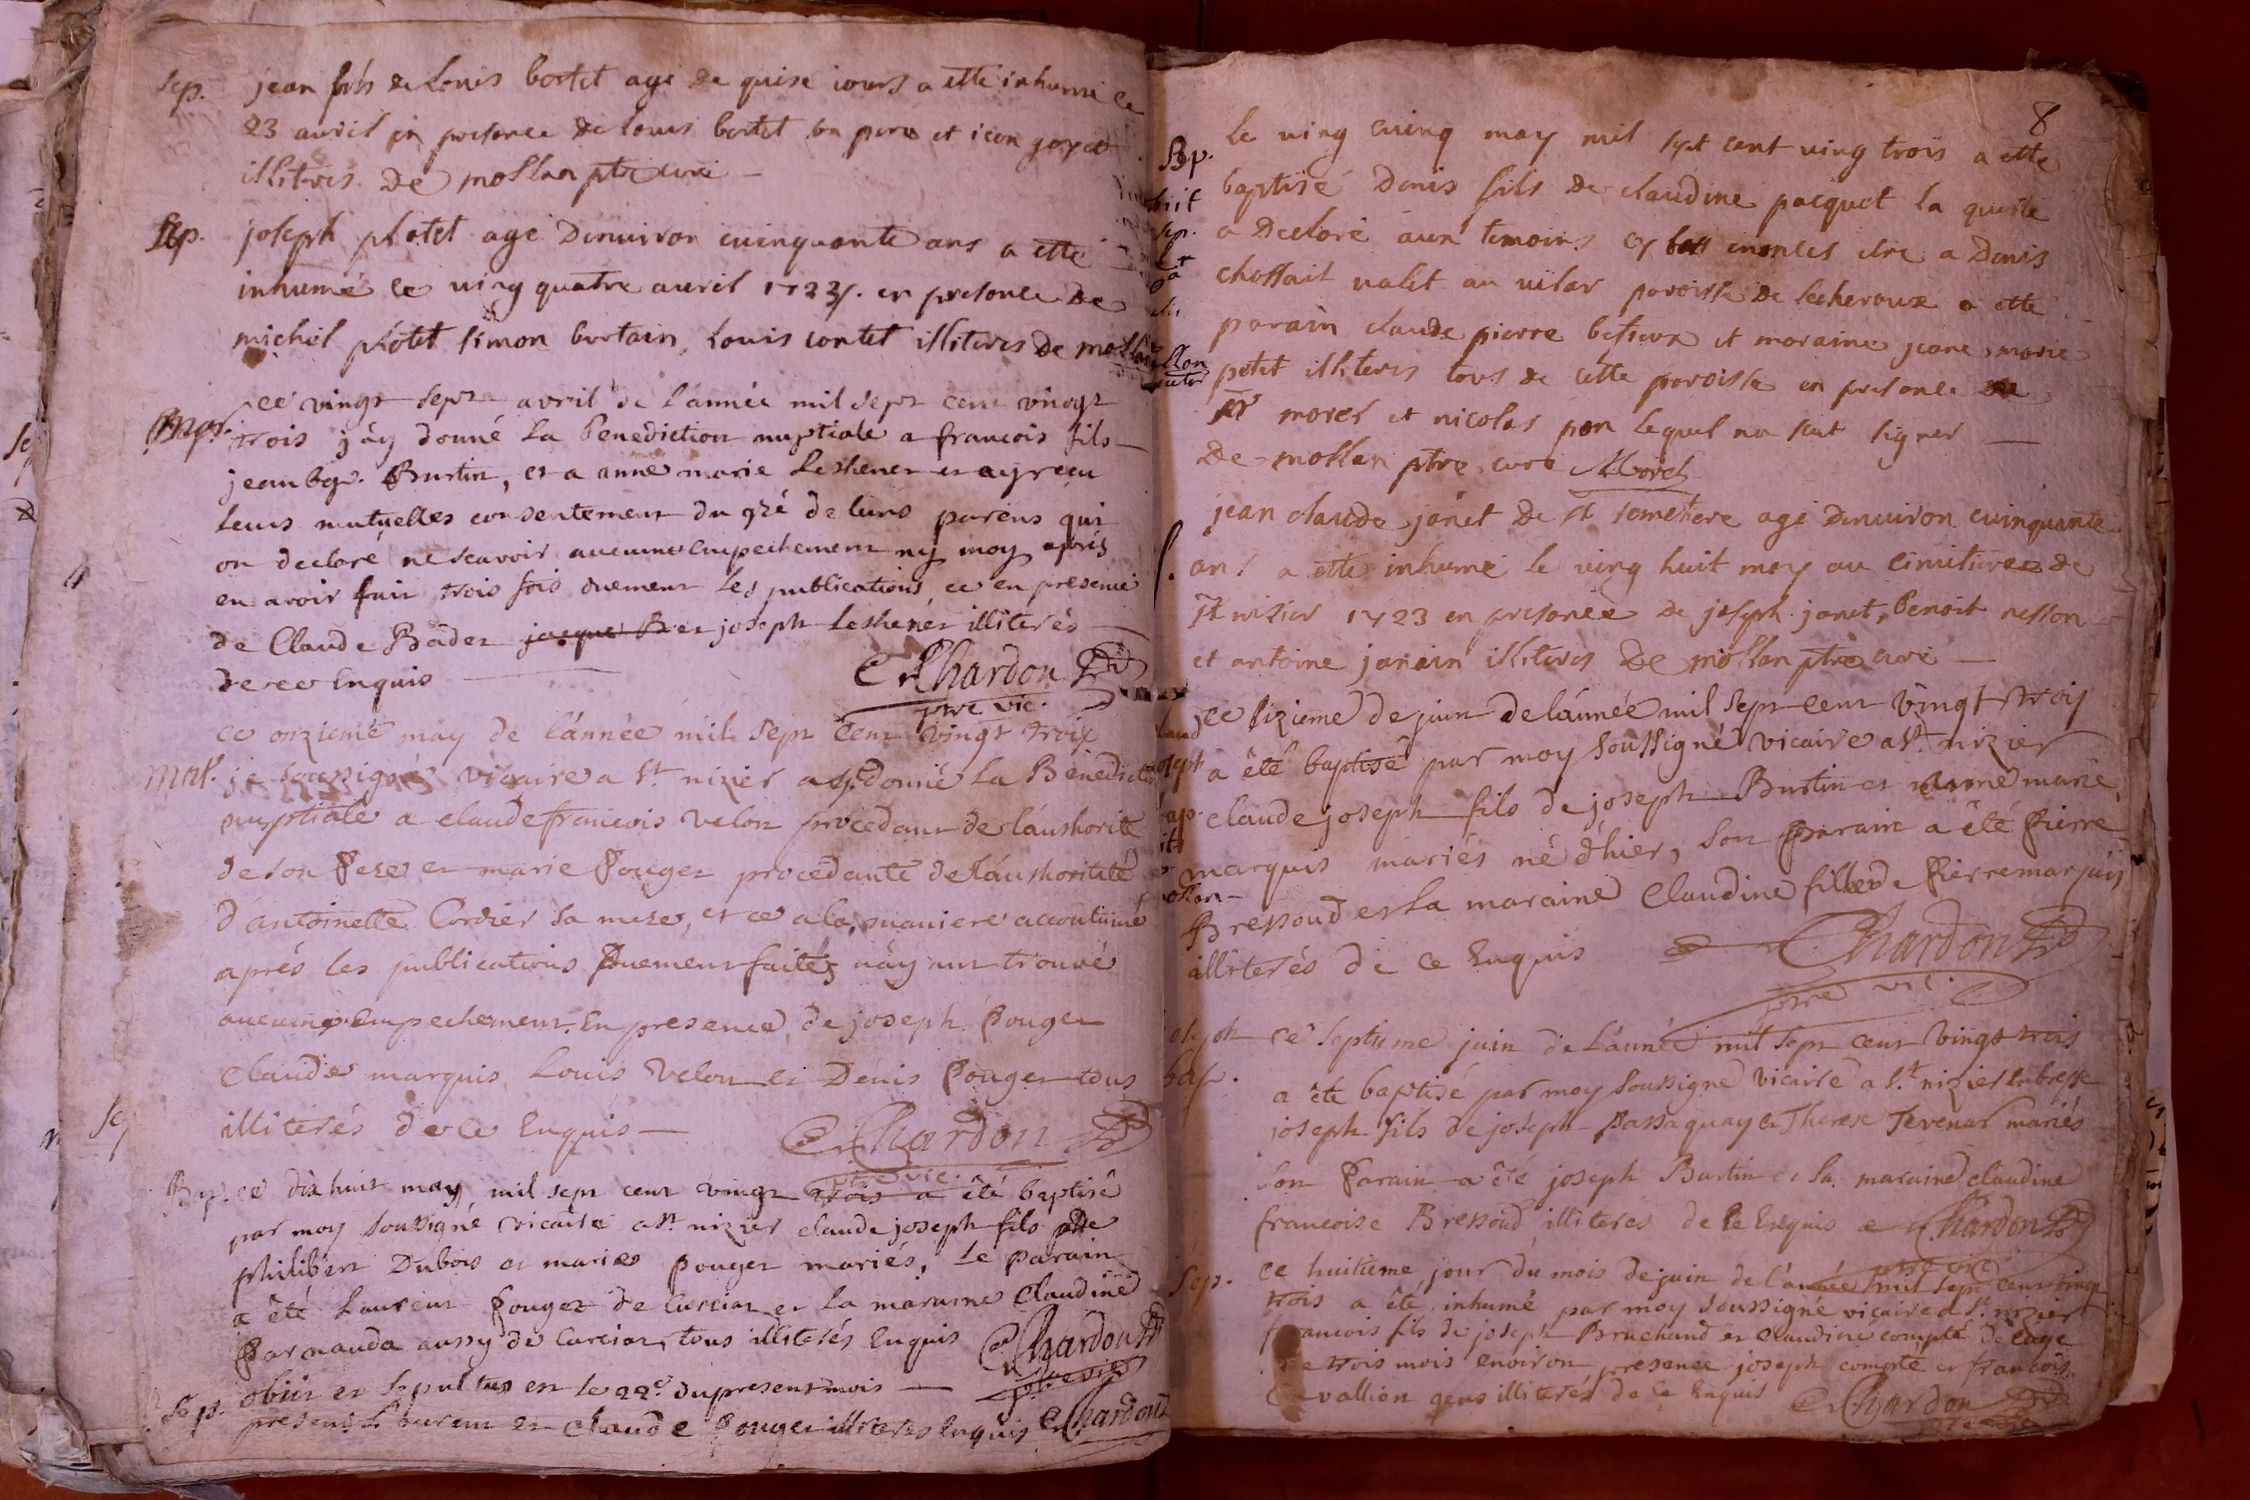 Sep. jean fils de Louis bortet agé de quise iours a etté inhumé ce
23 auril en presence de louis bortet son pere et jean
illiteres De mollan ptre curé
Sep. joseph plotet agé Denuiron cuinquante ans a etté
inhumé ce uing quatre auril 1723. en presence De
michel plotet simon burtain, Louis contet illiteres De mollan
Mar. ce vingt sept avril de l'année mil sept cent vingt
trois j'ay donné La Benediction nuptiale a francois fils
jean bte. Burtin, et a anne marie Leshener et ay reçu
leurs mutuelles consentement du gré de leurs parens qui
on declaré ne scavoir aucunne empechement ny moy aprés
en avoir fair trois fois duement Les publications, ce en presence
de Claude Badez jacque B et joseph Leshener illiterés
de ce Enquis
Chardon
ptre vic.
ce onzieme may de l'année mil sept Cent vingt trois
Mar. je soussigné vicaire a St nizier ay donné La Benediction
nuptiale a claude francois Velon procedant de l'authorité
de son Pere et marie Pouget procedante de l'authoritité
d'antoinette Cordier sa mere, et ce a la maniere accoutumé
aprés les publications Duement faites n'ayant trouvé
aucune empechement. En presence de joseph Pouget
Claude marquis, Louis Velon et Denis Pouget tous
illiterés de ce Enquis
Chardon
ptre vic.
Bap. ce dix huit may mil sept cent vingt trois a été baptisé
par moy soussigné vicaire a St nizier claude joseph fils de
philibert Dubois et marie pouget mariés, Le parain
a été Laurent Pouget de Curciat et la maraine Claudine
Parnauda aussy de Curciat, tous illiterés Enquis Chardon
ptre vic
Sep. obiit et sepultus est le 22e. du present mois
present Laurent et Claude Pouget illiteres Enquis Chardon
8
Bp. le uing cuinq may mil sept cent uing trois a etté
baptisé Denis fils de claudine pacquet la quelle
a Declaré aux temoins cy bas enonces etre a Denis
chossait ualet au uilar paroisse de lecheroux a etté
parain claude pierre bessieux et maraine jeane marie
petet illiteres tous de cette paroisse en presence de
morel et nicolas pon lequel na sceut signer
De mollan ptre curé Morel
jean claude janet De agé Denuiron cuinquante
S. ans a etté inhumé le uing huit may au cimitiere de
St nisier 1723 en presence de joseph janet, benoit nesson
et antoine janain illiteres De mollan ptre curé
ce sizieme de juin de l'année mil sept cent vingt trois
a été baptisé par moy soussigné vicaire a St. nizier
claude joseph fils de joseph Burtin et anne marie
marquis mariés né d'hier, son parain a été Pierre
Bressoud et la maraine Claudine fille de Pierre marquis
illiterés de ce Enquis Chardon
ptre vic.
ce septieme juin de l'année mil sept cent vingt trois
bap. a été baptisé par moy soussigné vicaire a St nizier la bresse
joseph fils de joseph Passaquay et Therese Tevenar mariés
son Parain a été joseph Burtin et la maraine claudine
francoise Bressoud illiteres de ce Enquis Chardon
ptre vic
Sep. ce huitieme jour du mois de juin de l'année mil sept cent vingt
trois a été inhumé par moy soussigné vicaire a St. nizier
francois fils de joseph Bruchand et claudine compte de l'age
de trois mois environ presence joseph compte et francois
Cavallion gens illiterés de ce Enquis Chardon